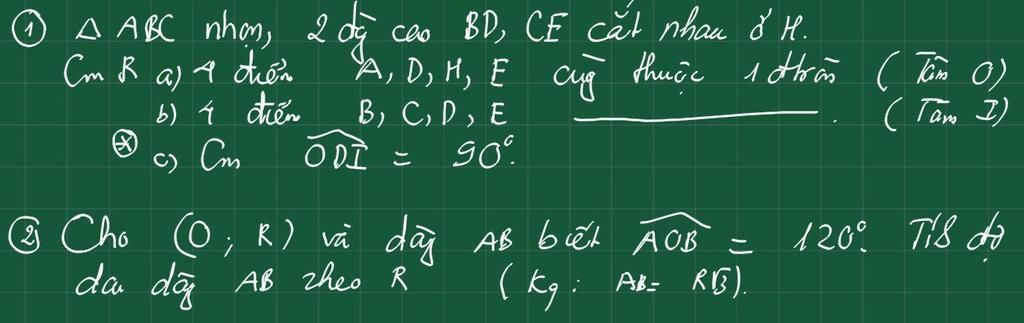 ① △ ABC nhọn, 2 đg cao BD, CE cắt nhau ở H.
Cm R a) 4 điểm A, D, H, E cùg thuộc 1 đtròn (Tâm O)
b) 4 điểm B, C, D, E ________. (Tâm I)
* c) Cm ODI = 90°.
② Cho (O; R) và dây AB biết AOB = 120°. Tíh độ
dài dây AB theo R (Kq: AB = R√3).